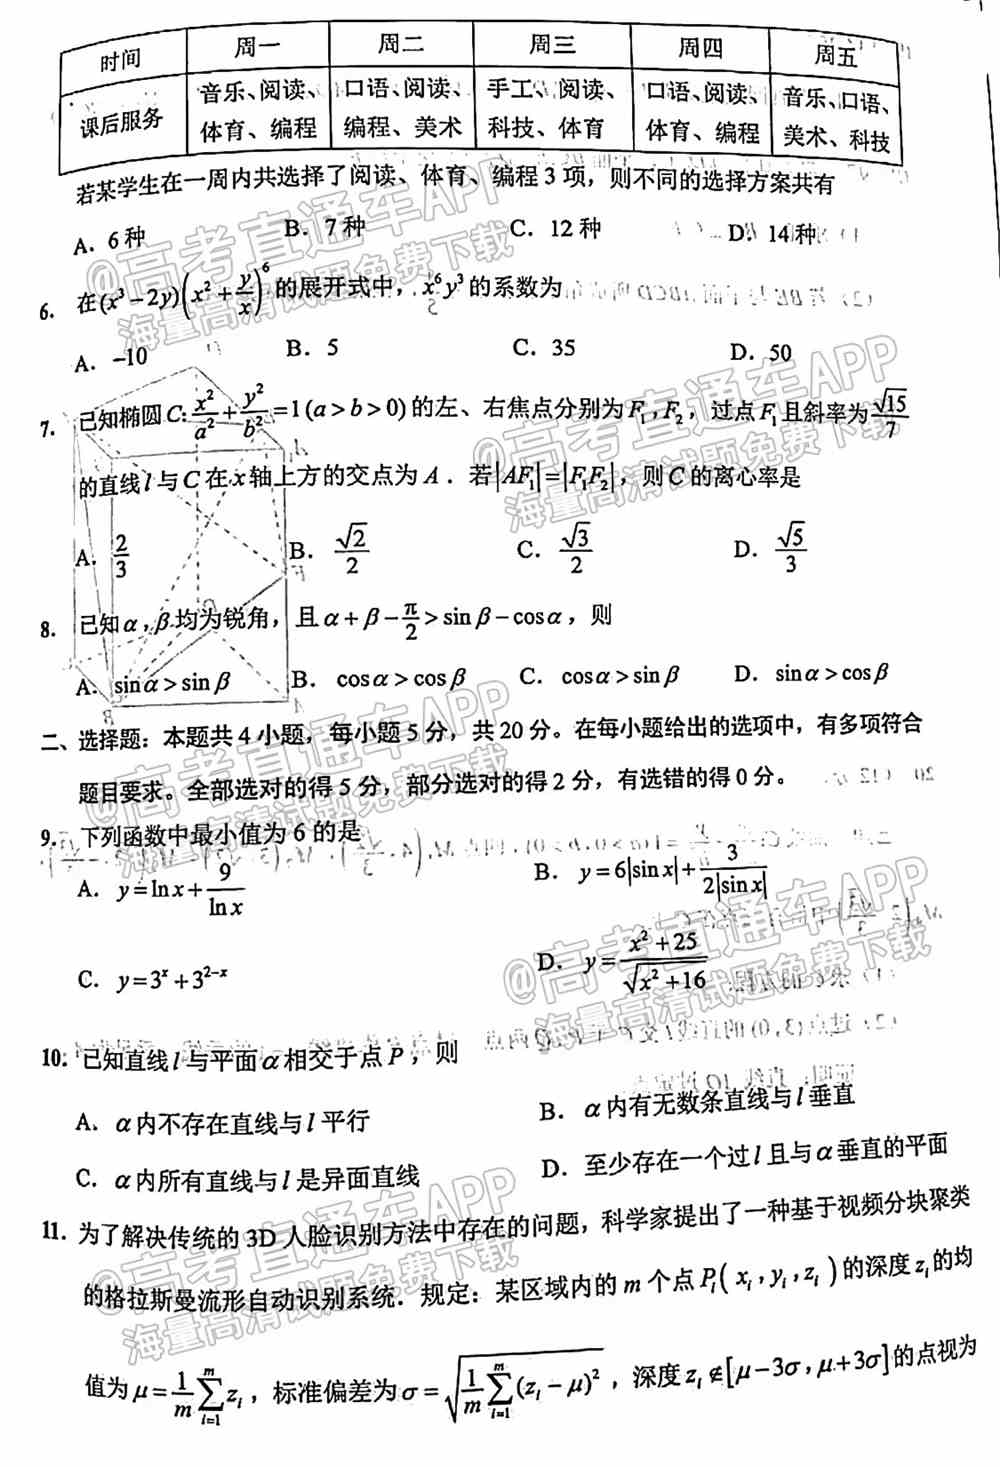 时间 周一 周二 周三 周四 周五
课后服务 音乐、阅读、体育、编程 口语、阅读、编程、美术 手工、阅读、科技、体育 口语、阅读、体育、编程 音乐、口语、美术、科技
若某学生在一周内共选择了阅读、体育、编程3项，则不同的选择方案共有
A．6种 B．7种 C．12种 D．14种
6．在(x³−2y)(x²+y/x)⁶的展开式中，x⁶y³的系数为
A．−10 B．5 C．35 D．50
7．已知椭圆C:x²/a²+y²/b²=1(a>b>0)的左、右焦点分别为F₁,F₂，过点F₁且斜率为√15/7
的直线l与C在x轴上方的交点为A．若|AF₁|=|F₁F₂|，则C的离心率是
A．2/3 B．√2/2 C．√3/2 D．√5/3
8．已知α,β均为锐角，且α+β−π/2>sinβ−cosα，则
A．sinα>sinβ B．cosα>cosβ C．cosα>sinβ D．sinα>cosβ
二、选择题：本题共4小题，每小题5分，共20分。在每小题给出的选项中，有多项符合
题目要求。全部选对的得5分，部分选对的得2分，有选错的得0分。
9．下列函数中最小值为6的是
A．y=lnx+9/lnx B．y=6|sinx|+3/(2|sinx|)
C．y=3ˣ+3²⁻ˣ D．y=(x²+25)/√(x²+16)
10．已知直线l与平面α相交于点P，则
A．α内不存在直线与l平行 B．α内有无数条直线与l垂直
C．α内所有直线与l是异面直线 D．至少存在一个过l且与α垂直的平面
11．为了解决传统的3D人脸识别方法中存在的问题，科学家提出了一种基于视频分块聚类
的格拉斯曼流形自动识别系统．规定：某区域内的m个点Pᵢ(xᵢ,yᵢ,zᵢ)的深度zᵢ的均
值为μ=1/m ∑(i=1→m) zᵢ，标准偏差为σ=√(1/m ∑(i=1→m)(zᵢ−μ)²)，深度zᵢ∉[μ−3σ,μ+3σ]的点视为
@高考直通车APP
海量高清试题免费下载
@高考直通车APP
海量高清试题免费下载
@高考直通车APP
海量高清试题免费下载
@高考直通车APP
海量高清试题免费下载
@高考直通车APP
海量高清试题免费下载